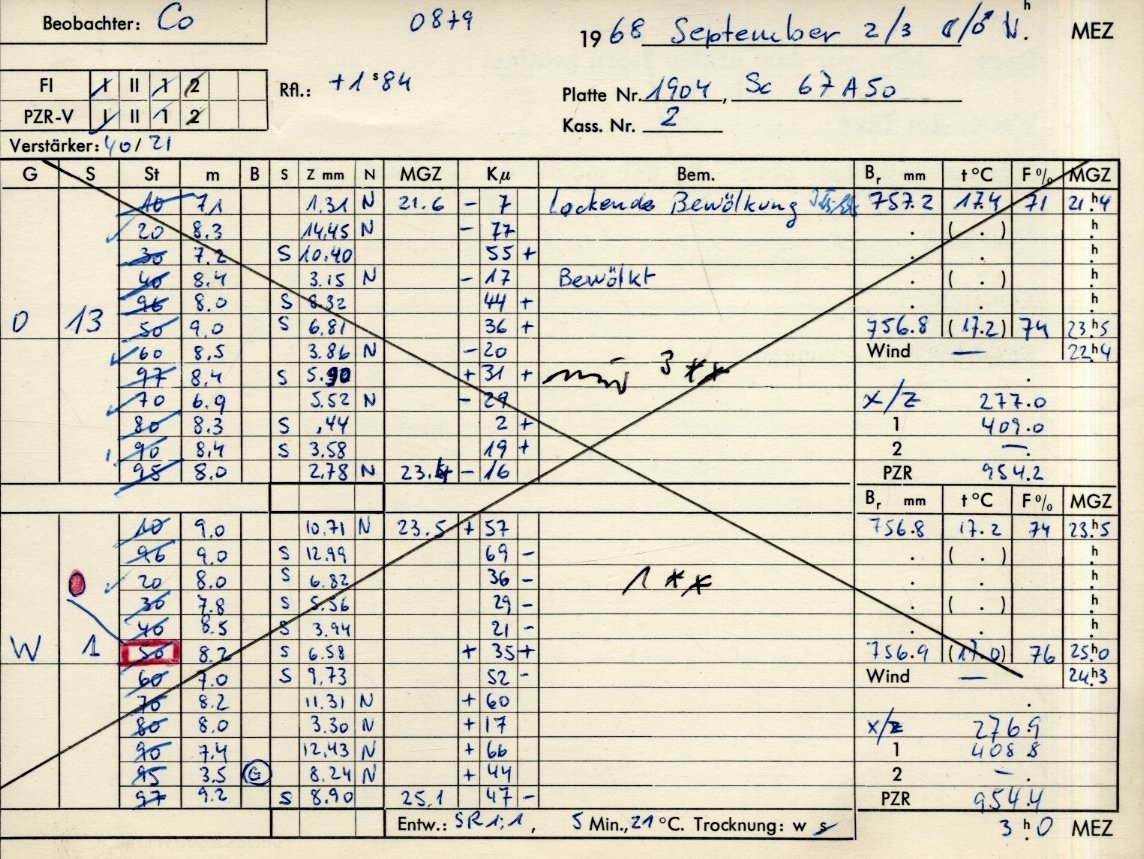 Beobachter: Co
0879
1968 September 2/3 N. h MEZ
FI I II 1 2
Rfl.: +1 s 84
Platte Nr. 1904, Sc 67A50
PZR-V I II 1 2
Kass. Nr. 2
Verstärker: 40/21
G S St m B S Z mm N MGZ Kμ Bem. Br mm t °C F % MGZ
10 7,1 1.31 N 21.6 - 7 Lockende Bewölkung 757.2 17.4 71 21 h 4
20 8.3 14.45 N - 77 . ( . ) h
30 7.2 S 10.40 55 + . . h
40 8.4 3.15 N - 17 Bewölkt . ( . ) h
96 8.0 S 8.32 44 + . . h
0 13 50 9,0 S 6,81 36 + 756.8 (17.2) 74 23 h 5
60 8,5 3.86 N - 20 Wind — 22 h 4
97 8.4 S 5.90 + 31 + nur 3 **
70 6.9 5.52 N - 29 x/z 277.0
80 8.3 S ,44 2 + 1 409.0
90 8,4 S 3.58 19 + 2 —
95 8.0 2.78 N 23.4 - 16 PZR 954.2
Br mm t °C F % MGZ
10 9,0 10.71 N 23.5 + 57 756.8 17.2 74 23 h 5
96 9,0 S 12.99 69 - . ( . ) h
20 8,0 S 6.82 36 - 1 ** . . h
30 7.8 S 5.56 29 - . ( . ) h
40 8.5 S 3.94 21 - . . h
W 1 50 8.2 S 6.58 + 35 + 756.9 (17.0) 76 25 h 0
60 7.0 S 9.73 52 - Wind — 24 h 3
70 8.2 11.31 N + 60
80 8.0 3.30 N + 17 x/z 276.9
90 7.4 12.43 N + 66 1 408.8
95 3.5 G 8.24 N + 44 2 —
97 9.2 S 8.90 25.1 47 - PZR 954.4
Entw.: SR 1:1, 5 Min., 21 °C. Trocknung: w s 3 h 0 MEZ